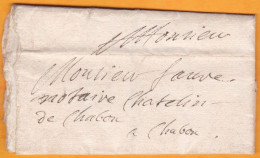 A Monsieur
Monsieur faure
notaire Chatelin
de Chabon
a Chabon